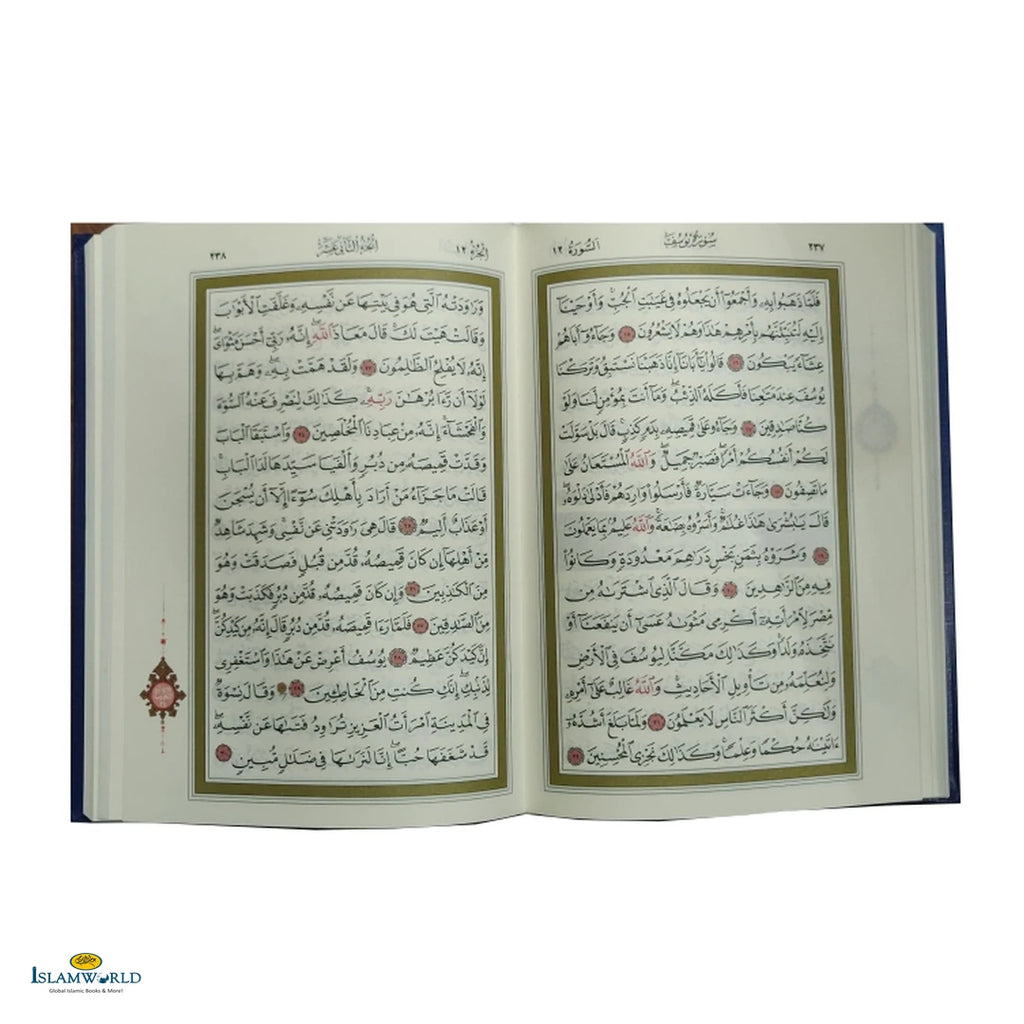 ٢٣٧ سُورَةُ يُوسُفَ السُّورَةُ ١٢
فَلَمَّا ذَهَبُوا۟ بِهِۦ وَأَجْمَعُوٓا۟ أَن يَجْعَلُوهُ فِى غَيَـٰبَتِ ٱلْجُبِّ ۚ وَأَوْحَيْنَآ
إِلَيْهِ لَتُنَبِّئَنَّهُم بِأَمْرِهِمْ هَـٰذَا وَهُمْ لَا يَشْعُرُونَ ١٥ وَجَآءُوٓ أَبَاهُمْ
عِشَآءً يَبْكُونَ ١٦ قَالُوا۟ يَـٰٓأَبَانَآ إِنَّا ذَهَبْنَا نَسْتَبِقُ وَتَرَكْنَا
يُوسُفَ عِندَ مَتَـٰعِنَا فَأَكَلَهُ ٱلذِّئْبُ ۖ وَمَآ أَنتَ بِمُؤْمِنٍ لَّنَا وَلَوْ
كُنَّا صَـٰدِقِينَ ١٧ وَجَآءُو عَلَىٰ قَمِيصِهِۦ بِدَمٍ كَذِبٍ ۚ قَالَ بَلْ سَوَّلَتْ
لَكُمْ أَنفُسُكُمْ أَمْرًا ۖ فَصَبْرٌ جَمِيلٌ ۖ وَٱللَّهُ ٱلْمُسْتَعَانُ عَلَىٰ
مَا تَصِفُونَ ١٨ وَجَآءَتْ سَيَّارَةٌ فَأَرْسَلُوا۟ وَارِدَهُمْ فَأَدْلَىٰ دَلْوَهُۥ ۖ
قَالَ يَـٰبُشْرَىٰ هَـٰذَا غُلَـٰمٌ ۚ وَأَسَرُّوهُ بِضَـٰعَةً ۚ وَٱللَّهُ عَلِيمٌۢ بِمَا يَعْمَلُونَ
١٩ وَشَرَوْهُ بِثَمَنٍۭ بَخْسٍ دَرَٰهِمَ مَعْدُودَةٍ وَكَانُوا۟
فِيهِ مِنَ ٱلزَّٰهِدِينَ ٢٠ وَقَالَ ٱلَّذِى ٱشْتَرَىٰهُ مِن
مِّصْرَ لِٱمْرَأَتِهِۦٓ أَكْرِمِى مَثْوَىٰهُ عَسَىٰٓ أَن يَنفَعَنَآ أَوْ
نَتَّخِذَهُۥ وَلَدًا ۚ وَكَذَٰلِكَ مَكَّنَّا لِيُوسُفَ فِى ٱلْأَرْضِ
وَلِنُعَلِّمَهُۥ مِن تَأْوِيلِ ٱلْأَحَادِيثِ ۚ وَٱللَّهُ غَالِبٌ عَلَىٰٓ أَمْرِهِۦ
وَلَـٰكِنَّ أَكْثَرَ ٱلنَّاسِ لَا يَعْلَمُونَ ٢١ وَلَمَّا بَلَغَ أَشُدَّهُۥٓ
ءَاتَيْنَـٰهُ حُكْمًا وَعِلْمًا ۚ وَكَذَٰلِكَ نَجْزِى ٱلْمُحْسِنِينَ ٢٢
الْجُزْءُ ١٢ الْجُزْءُ الثَّانِي عَشَرَ ٢٣٨
وَرَٰوَدَتْهُ ٱلَّتِى هُوَ فِى بَيْتِهَا عَن نَّفْسِهِۦ وَغَلَّقَتِ ٱلْأَبْوَٰبَ
وَقَالَتْ هَيْتَ لَكَ ۚ قَالَ مَعَاذَ ٱللَّهِ ۖ إِنَّهُۥ رَبِّىٓ أَحْسَنَ مَثْوَاىَ ۖ
إِنَّهُۥ لَا يُفْلِحُ ٱلظَّـٰلِمُونَ ٢٣ وَلَقَدْ هَمَّتْ بِهِۦ ۖ وَهَمَّ بِهَا
لَوْلَآ أَن رَّءَا بُرْهَـٰنَ رَبِّهِۦ ۚ كَذَٰلِكَ لِنَصْرِفَ عَنْهُ ٱلسُّوٓءَ
وَٱلْفَحْشَآءَ ۚ إِنَّهُۥ مِنْ عِبَادِنَا ٱلْمُخْلَصِينَ ٢٤ وَٱسْتَبَقَا ٱلْبَابَ
وَقَدَّتْ قَمِيصَهُۥ مِن دُبُرٍ وَأَلْفَيَا سَيِّدَهَا لَدَا ٱلْبَابِ ۚ
قَالَتْ مَا جَزَآءُ مَنْ أَرَادَ بِأَهْلِكَ سُوٓءًا إِلَّآ أَن يُسْجَنَ
أَوْ عَذَابٌ أَلِيمٌ ٢٥ قَالَ هِىَ رَٰوَدَتْنِى عَن نَّفْسِى ۚ وَشَهِدَ شَاهِدٌ
مِّنْ أَهْلِهَآ إِن كَانَ قَمِيصُهُۥ قُدَّ مِن قُبُلٍ فَصَدَقَتْ وَهُوَ
مِنَ ٱلْكَـٰذِبِينَ ٢٦ وَإِن كَانَ قَمِيصُهُۥ قُدَّ مِن دُبُرٍ فَكَذَبَتْ وَهُوَ
مِنَ ٱلصَّـٰدِقِينَ ٢٧ فَلَمَّا رَءَا قَمِيصَهُۥ قُدَّ مِن دُبُرٍ قَالَ إِنَّهُۥ مِن كَيْدِكُنَّ ۖ
إِنَّ كَيْدَكُنَّ عَظِيمٌ ٢٨ يُوسُفُ أَعْرِضْ عَنْ هَـٰذَا ۚ وَٱسْتَغْفِرِى
لِذَنۢبِكِ ۖ إِنَّكِ كُنتِ مِنَ ٱلْخَاطِـِٔينَ ٢٩ وَقَالَ نِسْوَةٌ
فِى ٱلْمَدِينَةِ ٱمْرَأَتُ ٱلْعَزِيزِ تُرَٰوِدُ فَتَىٰهَا عَن نَّفْسِهِۦ ۖ
قَدْ شَغَفَهَا حُبًّا ۖ إِنَّا لَنَرَىٰهَا فِى ضَلَـٰلٍ مُّبِينٍ ٣٠
ISLAMWORLD
Global Islamic Books & More!